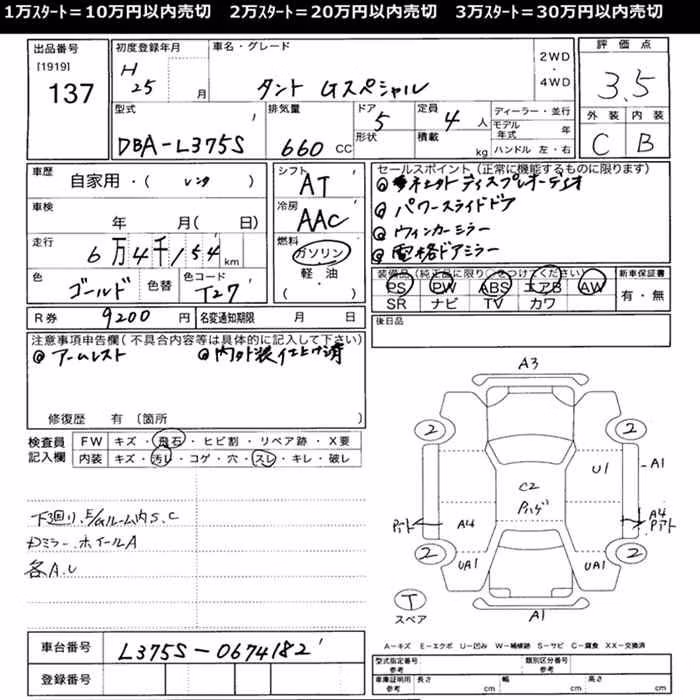 1万スタート＝10万円以内売切　2万スタート＝20万円以内売切　3万スタート＝30万円以内売切
出品番号
[1919]
137
初度登録年月
H
25 月
車名・グレード
タント Gスペシャル
2WD
・
4WD
評価点
3.5
外装 内装
C B
型式
DBA-L375S
排気量
660 CC
ドア 5
形状
定員 4 人
積載 kg
ディーラー・並行
モデル年式 年
ハンドル 左・右
車歴
自家用・( レンタ )
車検
年 月( 日)
走行
6万4千154 km
色
ゴールド
色替
色コード
T27
シフト
AT
冷房
AAC
燃料
ガソリン
軽油
( )
セールスポイント(正常に機能するものに限ります)
パワースライドドア
ウィンカーミラー
電格ドアミラー
装備品(純正品に限り○をつけてください)
PS PW ABS エアB AW
SR ナビ TV カワ
新車保証書
有・無
R券 9200 円
名変通知期限 月 日
後日品
注意事項申告欄(不具合内容等は具体的に記入して下さい)
アームレスト 内外装仕上げ済
修復歴 有 〔箇所 〕
検査員
記入欄
FW キズ・飛石・ヒビ割・リペア跡・X要
内装 キズ・汚レ・コゲ・穴・スレ・キレ・破レ
下廻り、E/Gルーム内S.C
Dミラー、ホイールA
各A.U
A3
2 2
U1 A1
C2
Pハゲ
A4
A4
Pアト
Pアト
2 2
UA1 UA1
T
スペア
A1
車台番号 L375S-0674182
登録番号
A－キズ E－エクボ U－凹み W－補修跡 S－サビ C－腐食 XX－交換済
型式指定番号
参考
類別区分番号
参考
車庫証明用
参考
長さ cm 幅 cm 高さ cm